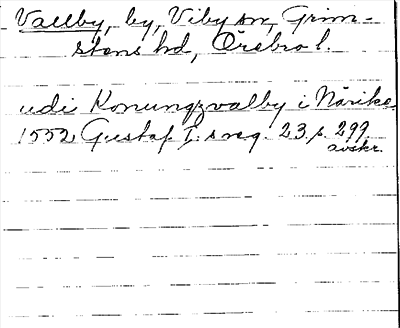 Vallby, by, Viby sn, Grim-
stens hd, Örebro l.
udi Konungzvalby i Närike
1552 Gustaf I:s reg. 23 s. 299
avskr.